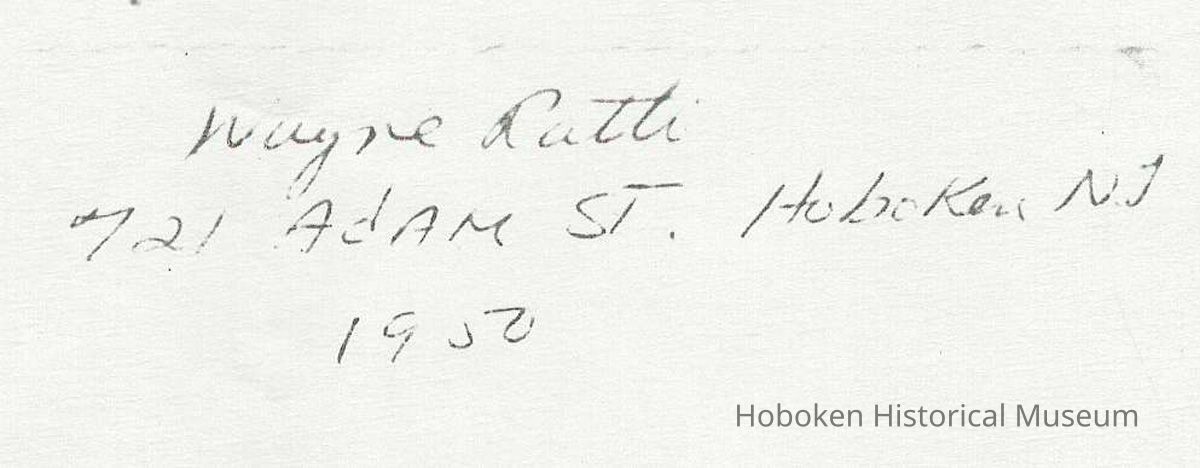 Wayne Ratti
721 AdAM ST. Hoboken NJ
1950
Hoboken Historical Museum